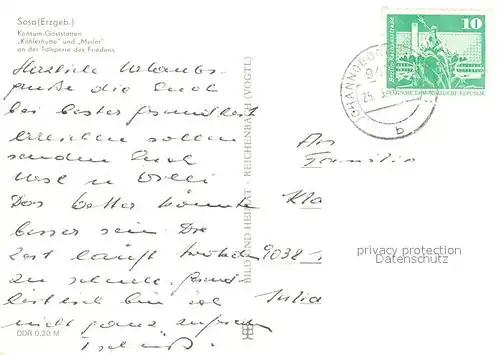 Sosa (Erzgeb.)
Konsum-Gaststätten
„Köhlerhütte" und „Meiler"
an der Talsperre des Friedens
Herzliche Urlaubs-
grüße die Euch
bei bester Gesundheit
erreichen sollen
senden Euch
u Willi
Das Wetter könnte
besser sein Die
Zeit läuft
zu schnell.
ich bin ich
nicht ganz zufrieden
Tschüß
DDR 0,20 M
BILD UND HEIMAT · REICHENBACH (VOGTL)
10
DEUTSCHE DEMOKRATISCHE REPUBLIK
25.
b
An
Familie
Kla
9038
Julia
privacy protection
Datenschutz